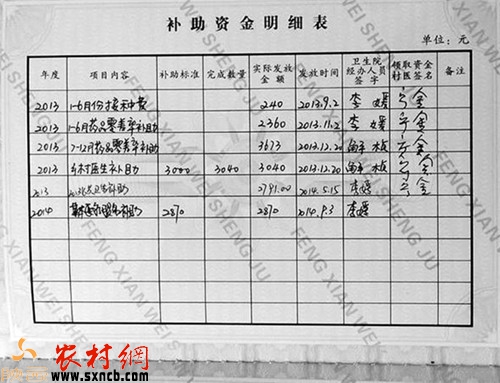 补助资金明细表
单位：元
年度 项目内容 补助标准 完成数量 实际发放金额 发放时间 卫生院经办人员签字 领取资金村医签名 备注
2013 1-6月份接种费 240 2013.9.2 李媛
2013 1-6月药品零差率补助 2360 2013.11.2 李媛
2013 7-12月药品零差率补助 3673 2013.12.20
2013 乡村医生补助 3000 3040 3040 2013.12.20
2013 补助 2791.00 2014.5.15 李媛
2014 补助 2870 2870 2014.9.3 李媛
FENG XIAN WEI SHENG JU
农村網
www.sxncb.com